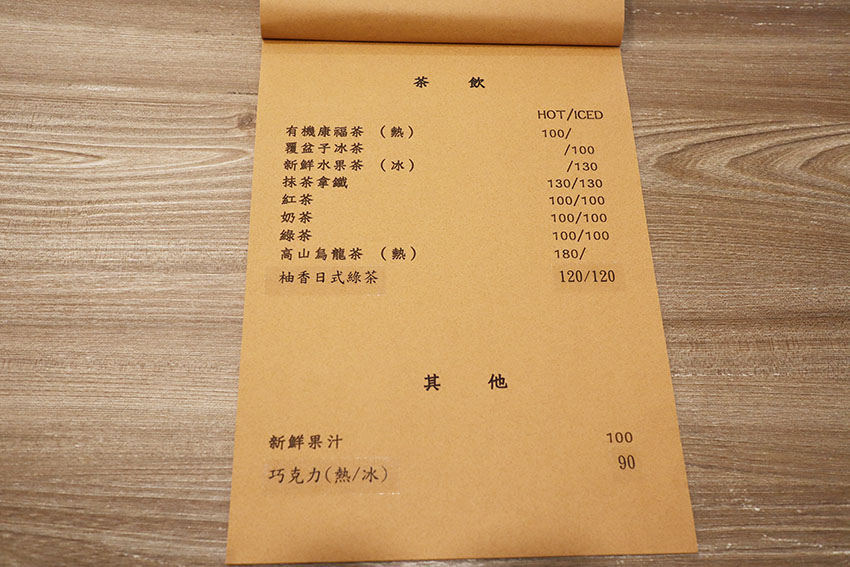 茶 飲
HOT/ICED
有機康福茶 (熱) 100/
覆盆子冰茶 /100
新鮮水果茶 (冰) /130
抹茶拿鐵 130/130
紅茶 100/100
奶茶 100/100
綠茶 100/100
高山烏龍茶 (熱) 180/
柚香日式綠茶 120/120
其 他
新鮮果汁 100
巧克力(熱/冰) 90